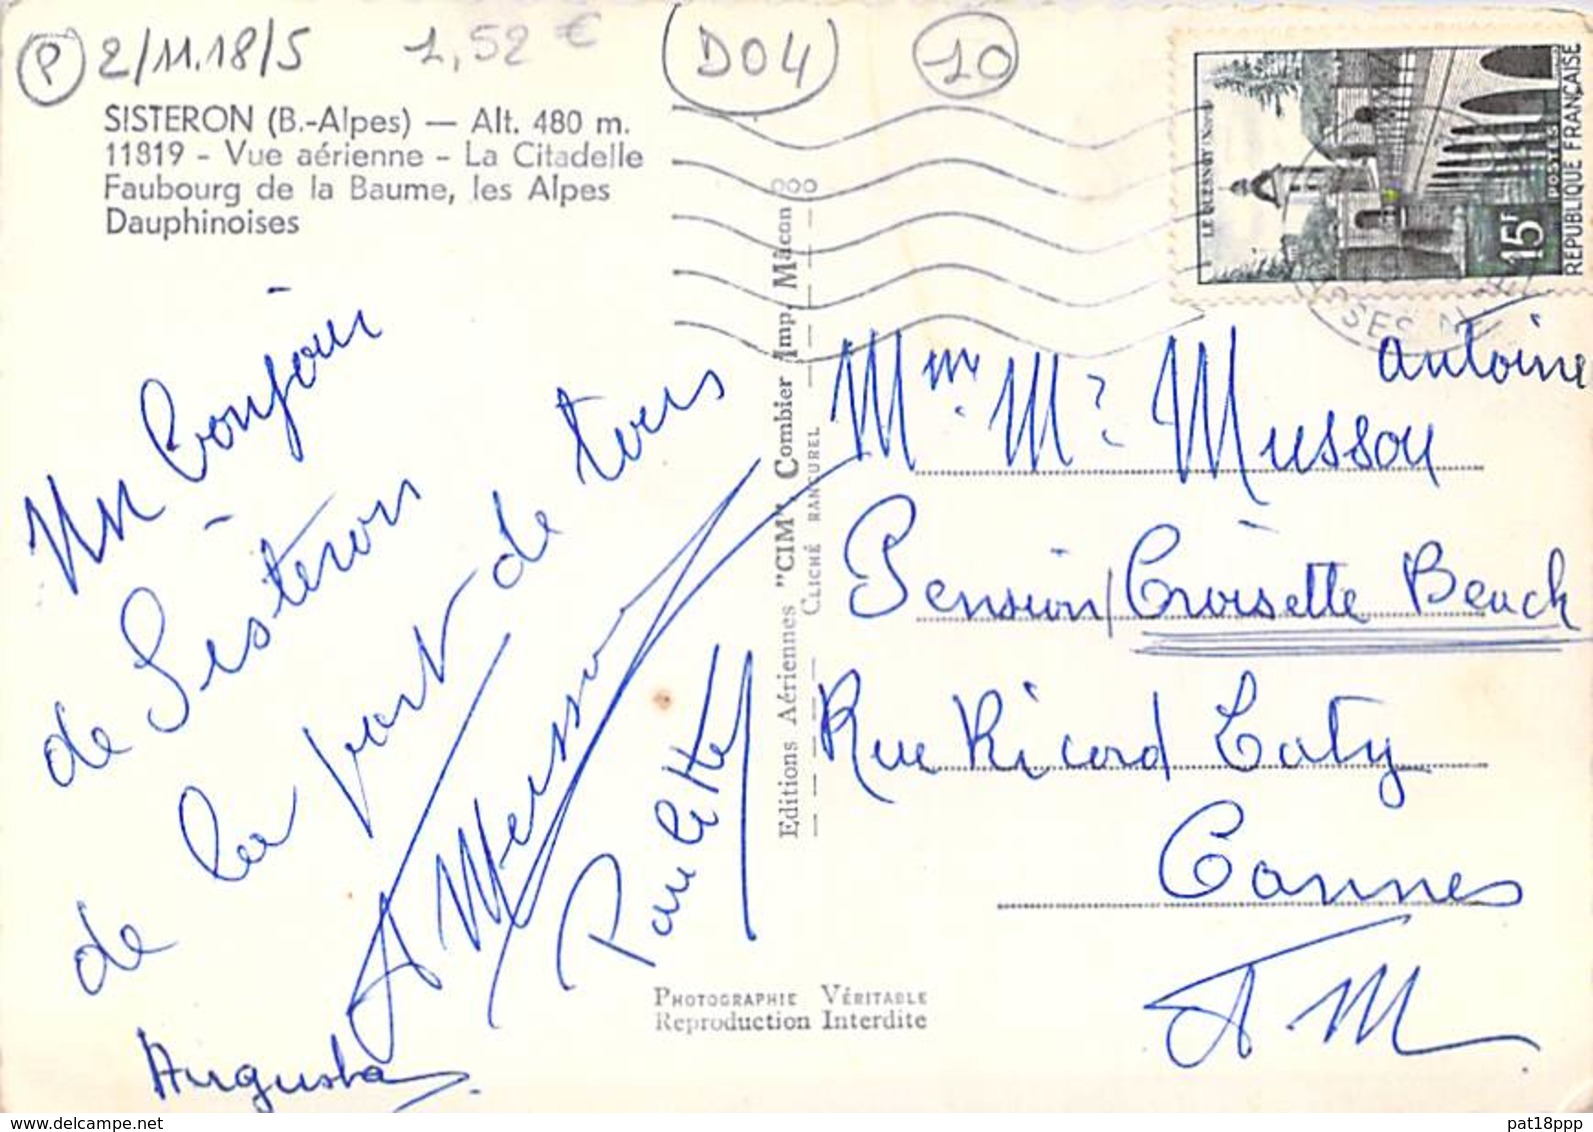 P 2/11.18/5 1,52 € (D04) 10
SISTERON (B.-Alpes) — Alt. 480 m.
11819 - Vue aérienne - La Citadelle
Faubourg de la Baume, les Alpes
Dauphinoises
Un bonjour
de Sisteron
de la part de tous
A Musson
Paulette
Augusta
Editions Aériennes "CIM", Combier Imp. Mâcon
CLICHÉ RANCUREL
PHOTOGRAPHIE VÉRITABLE
Reproduction Interdite
LE QUESNOY (Nord)
15F
POSTES
REPUBLIQUE FRANÇAISE
Antoine
Mme Mr Musson
Pension Croisette Beach
Rue Ricord Laty
Cannes
A. M
www.delcampe.net
pat18ppp